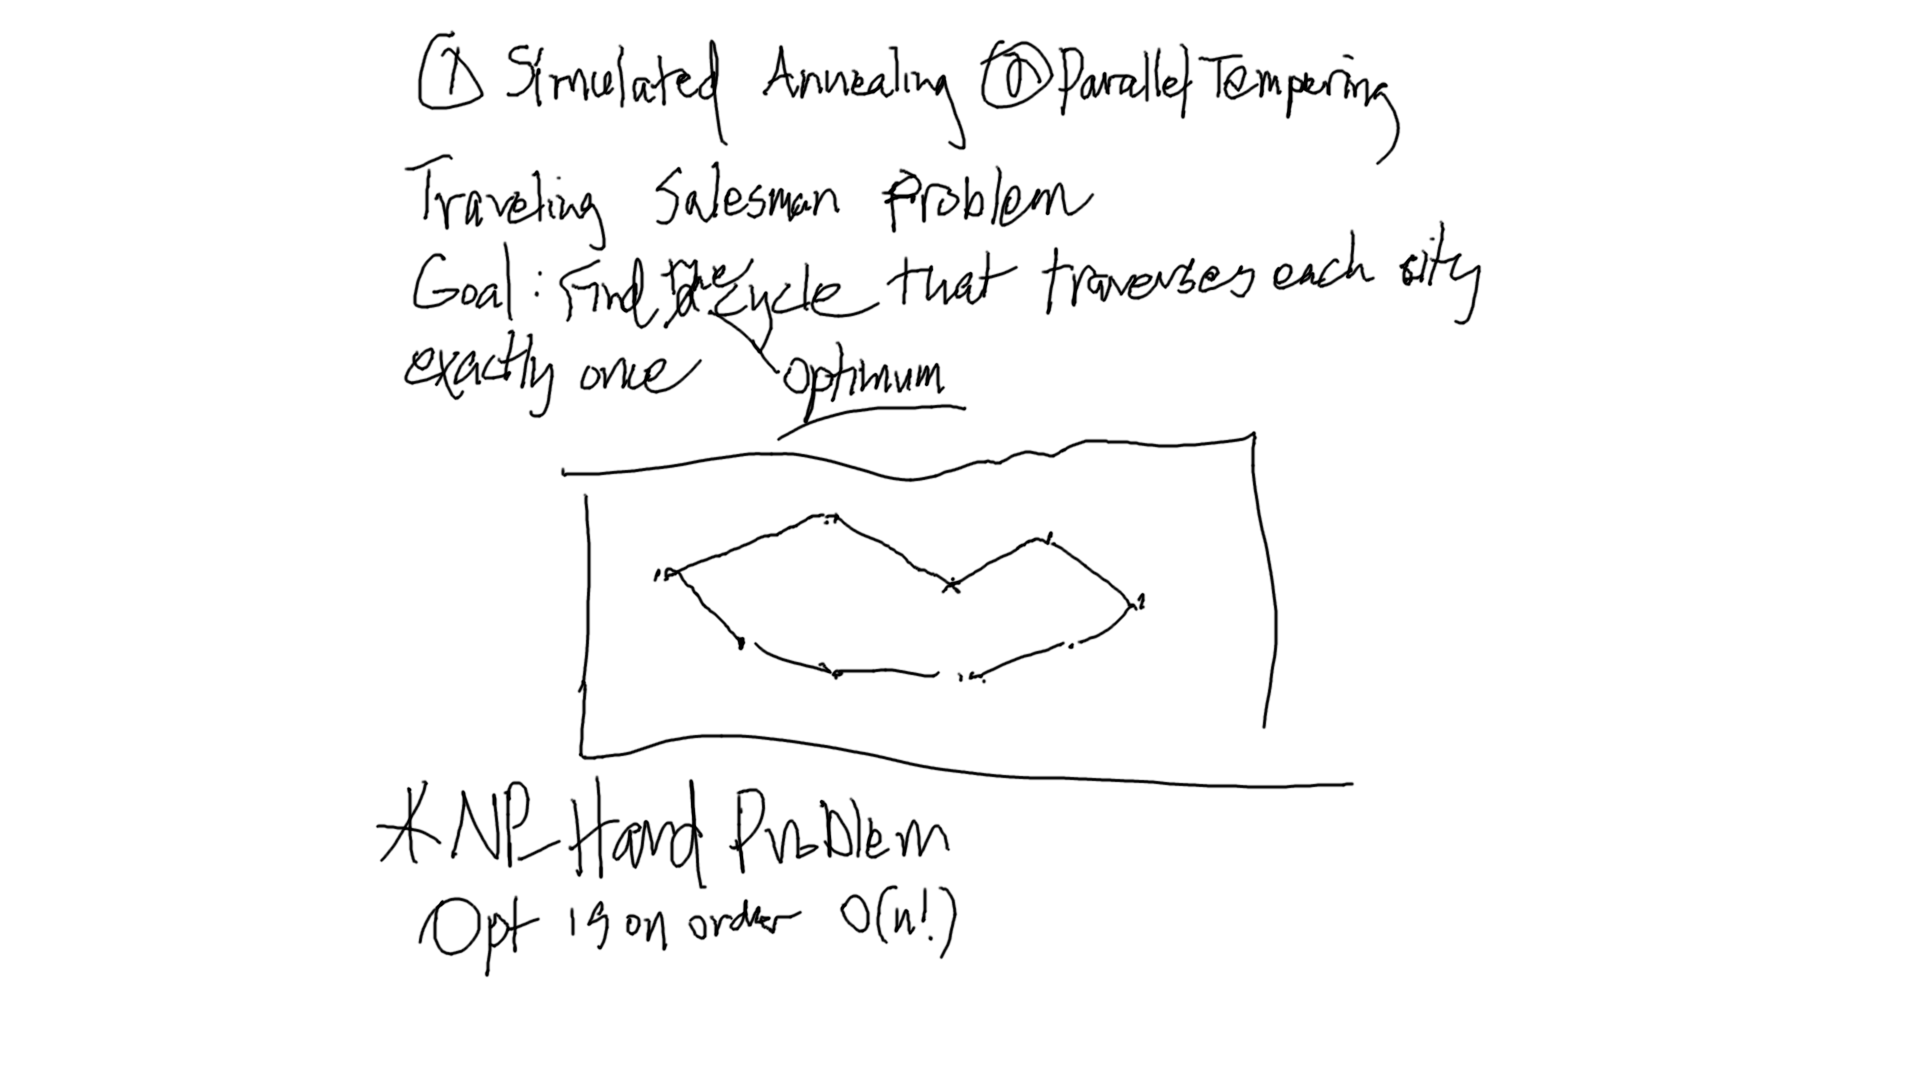 ① Simulated Annealing ⓪ Parallel Tempering
Traveling Salesman Problem
Goal: Find the cycle that traverses each city
exactly once optimum
* NP-Hard Problem
Opt is on order O(n!)